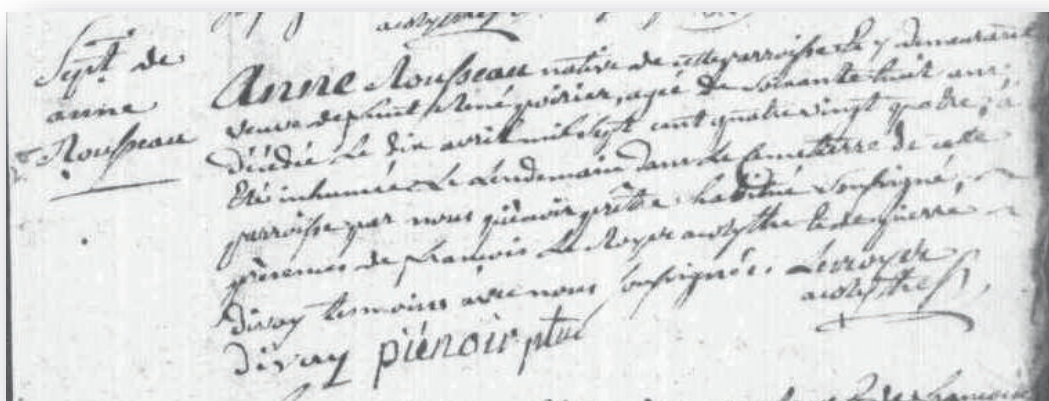 acolythe
Sept. de
anne
Rousseau
Anne Rousseau native de cette parroisse et y demeurante
veuve de defunt Réné poirier, agée de soixante huit ans,
décédée Le dix avril mil sept cent quatre vingt quatre, à
Eté inhumée Le Lendemain dans Le Cemetierre de cette
parroisse par nous piénoir prêtre habitué soussigné,
présences de françois Le Royer acolythe et de pierre
divay temoins avec nous soussignés. Leroyer
acolythe
divay piénoir ptre
de françois